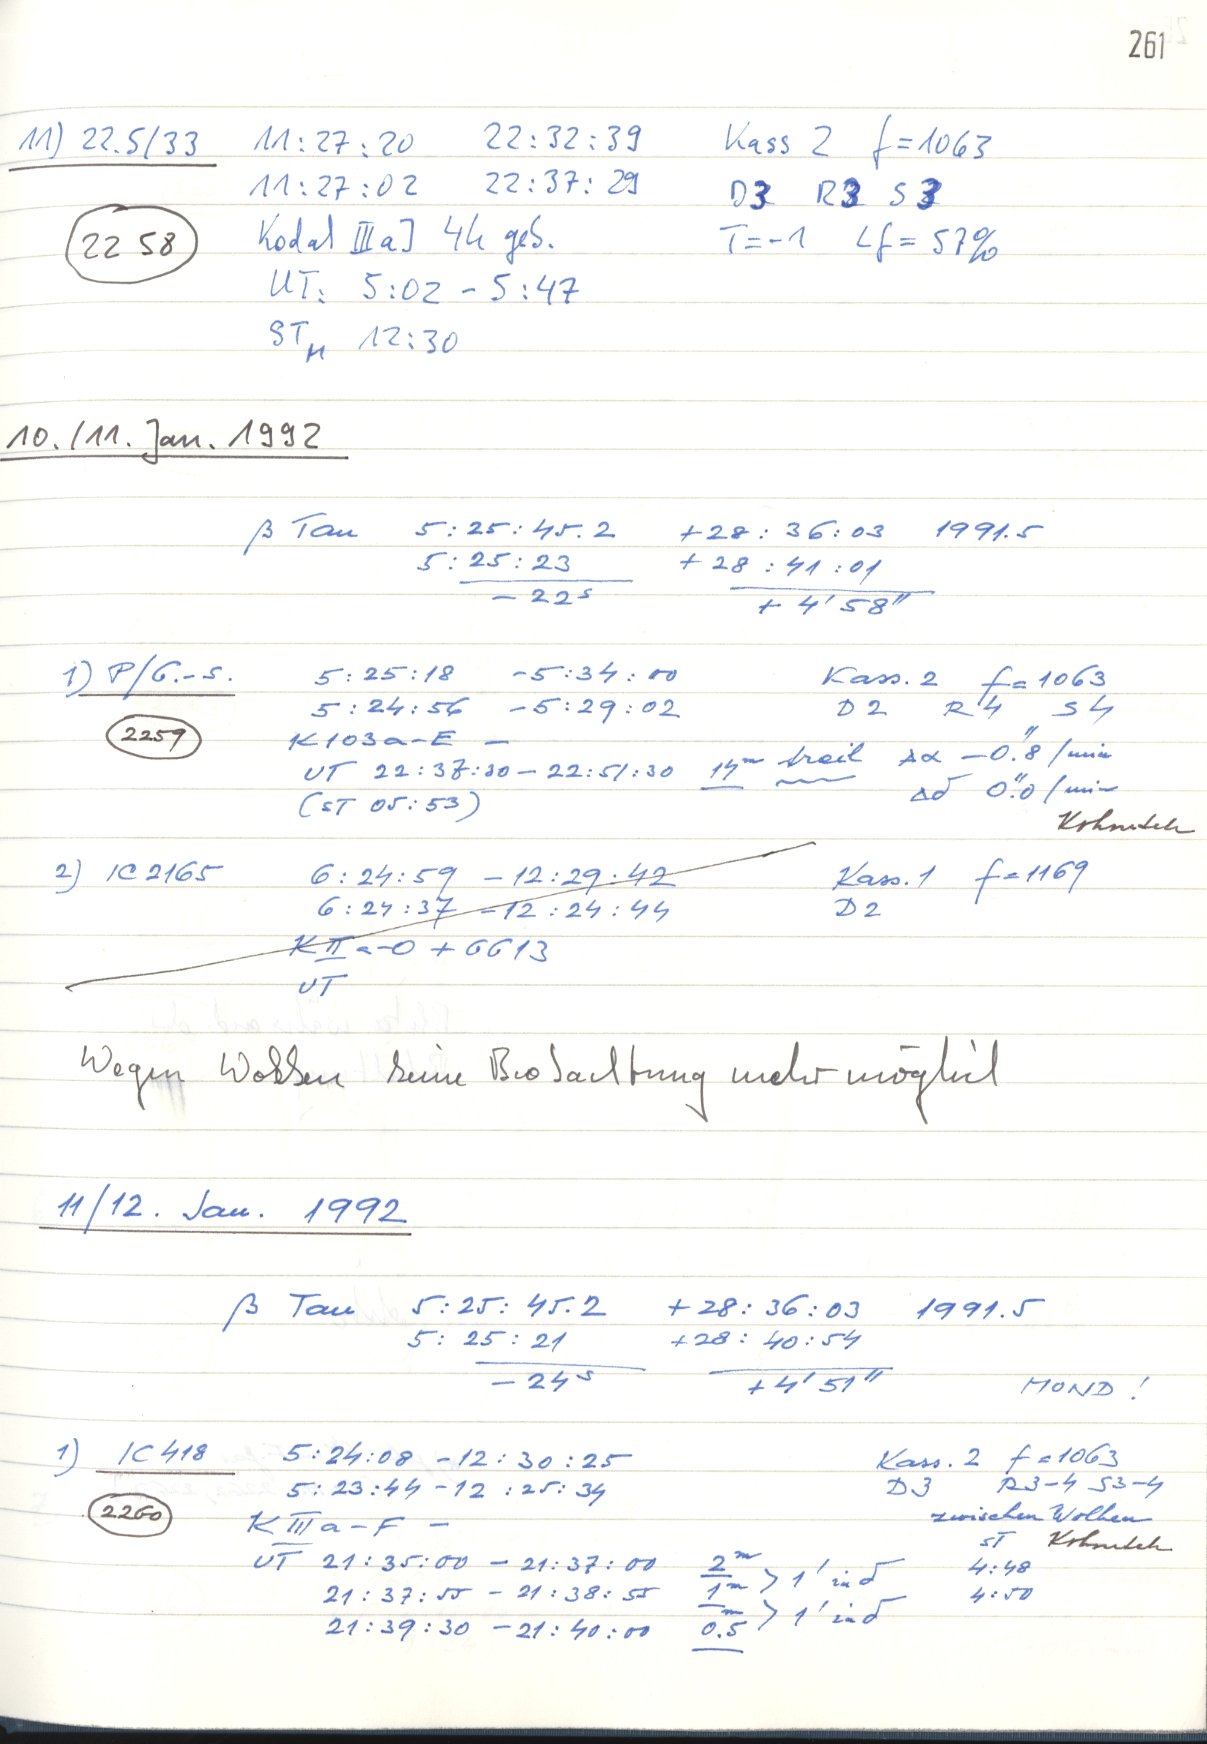 261
11) 22.5/33 11:27:20 22:32:39 Kass 2 f=1063
11:27:02 22:37:29 D3 R3 S3
2258 Kodak IIIaJ 4h geb. T=-1 Lf=57%
UT: 5:02 - 5:47
ST_M 12:30
10./11. Jan. 1992
β Tau 5:25:45.2 +28:36:03 1991.5
5:25:23 +28:41:01
-22ˢ +4'58"
1) P/G.-S. 5:25:18 -5:34:00 Kass. 2 f=1063
5:24:56 -5:29:02 D2 R4 S4
2259 K103a-E -
UT 22:37:30 - 22:51:30 14ᵐ trail Δα -0."8/min
(ST 05:53) Δδ 0."0/min
Kohoutek
2) IC 2165 6:24:59 -12:29:42 Kass. 1 f=1169
6:24:37 -12:24:44 D2
KIIa-O + GG13
UT
Wegen Wolken keine Beobachtung mehr möglich
11/12. Jan. 1992
β Tau 5:25:45.2 +28:36:03 1991.5
5:25:21 +28:40:54
-24ˢ +4'51" MOND!
1) IC 418 5:24:08 -12:30:25 Kass. 2 f=1063
5:23:44 -12:25:34 D3 R3-4 S3-4
2260 KIIIa-F - zwischen Wolken
ST Kohoutek
UT 21:35:00 - 21:37:00 2ᵐ > 1' in δ 4:48
21:37:55 - 21:38:55 1ᵐ > 1' in δ 4:50
21:39:30 - 21:40:00 0.5ᵐ